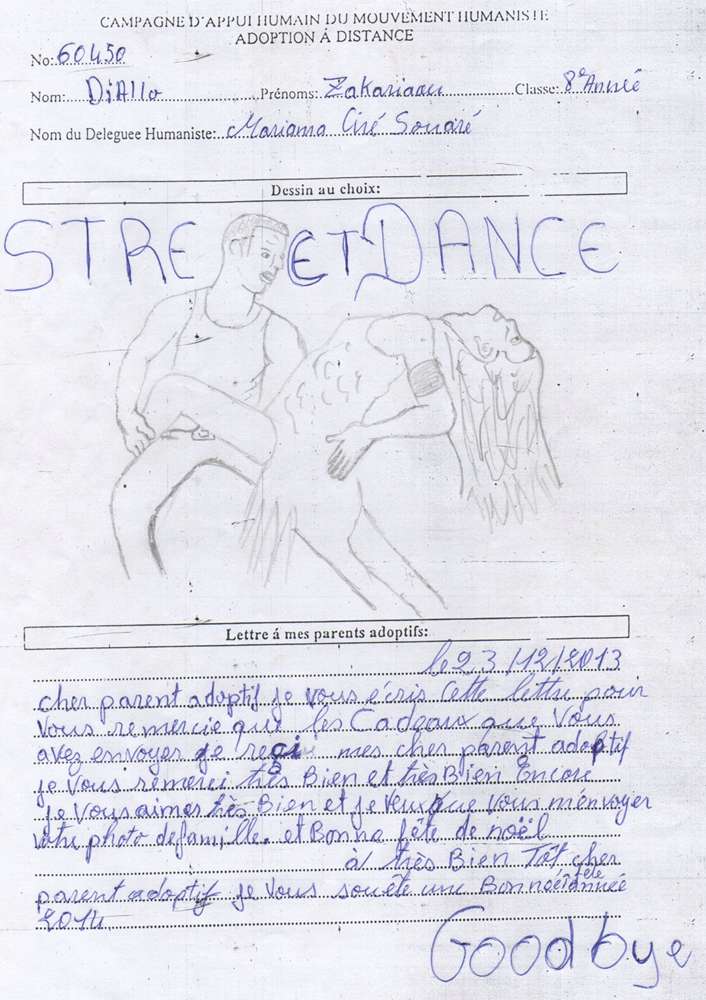 CAMPAGNE D'APPUI HUMAIN DU MOUVEMENT HUMANISTE
ADOPTION Á DISTANCE
No: 60450
Nom: DiAllo Prénoms: Zakariaou Classe: 8e Année
Nom du Deleguee Humaniste: Mariama Ciré Souaré
Dessin au choix:
STREET DANCE
Lettre á mes parents adoptifs:
le 23/12/2013
cher parent adoptif je vous écris Cette lettre pour
Vous remercie que les Cadeaux que Vous
avez envoyer je reçi mes cher parent adoptif
je vous remerci très Bien et très Bien Encore
je Vous aimer très Bien et je veux que vous m'envoyer
votre photo de famille. et Bonna fête de noël
à très Bien Tôt cher
parent adoptif je vous souète une Bon fête année
2014
Goodbye